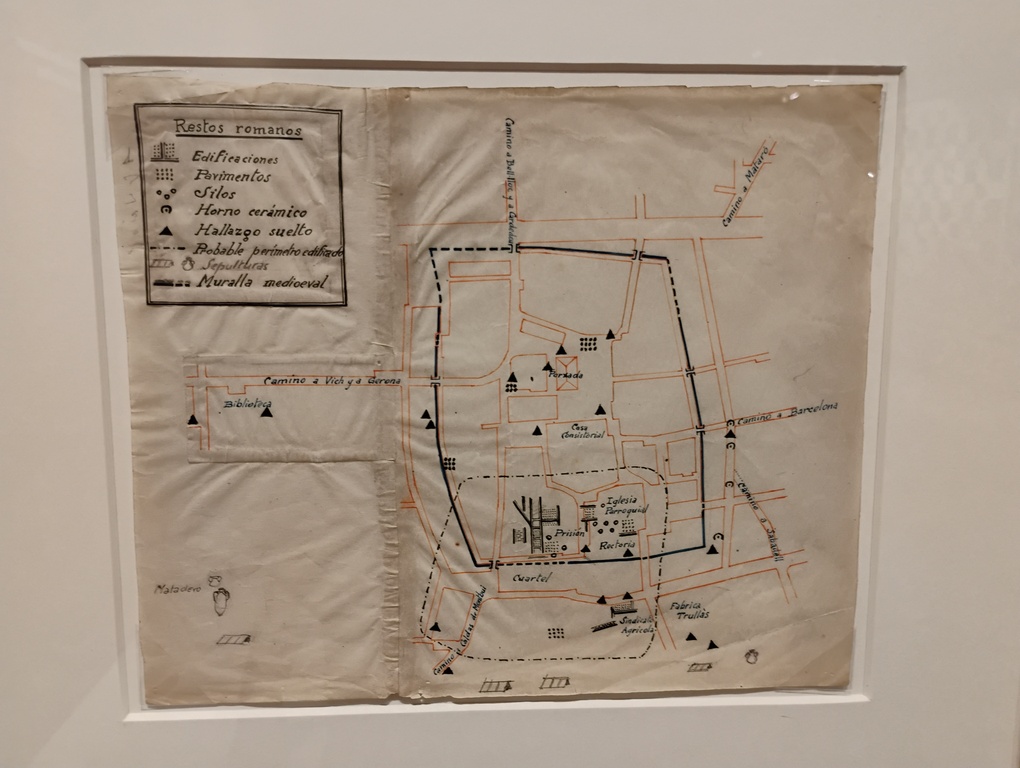 Restos romanos
Edificaciones
Pavimentos
Silos
Horno cerámico
Hallazgo suelto
Probable perímetro edificado
Sepulturas
Muralla medioeval
Camino a Mataró
Camino a Bell-lloc y a Cardedeu
Porxada
Camino a Vich y a Gerona
Biblioteca
Camino a Barcelona
Casa
Consistorial
Camino a Sabadell
Iglesia
Parroquial
Prisión
Rectoría
Cuartel
Matadero
Camino a Caldas de Montbui
Fabrica
Trullás
Sindicato
Agrícola